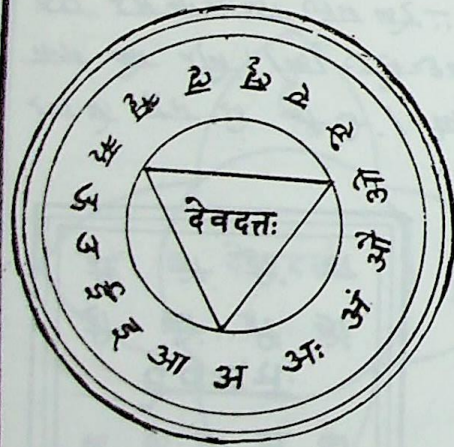 देवदत्तः
अ आ इ ई उ ऊ ऋ ॠ ऌ ॡ ए ऐ ओ औ अं अः